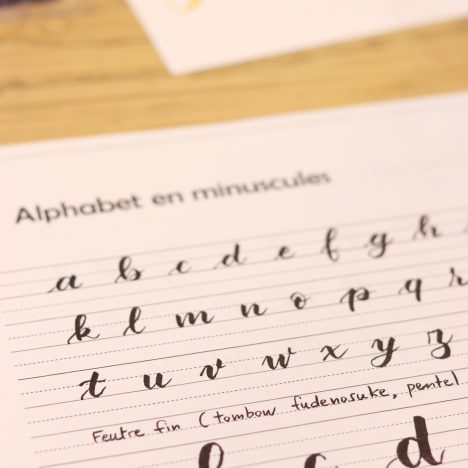 Alphabet en minuscules
a b c d e f g h
k l m n o p q r
t u v w x y z
Feutre fin (tombow fudenosuke, pentel
d